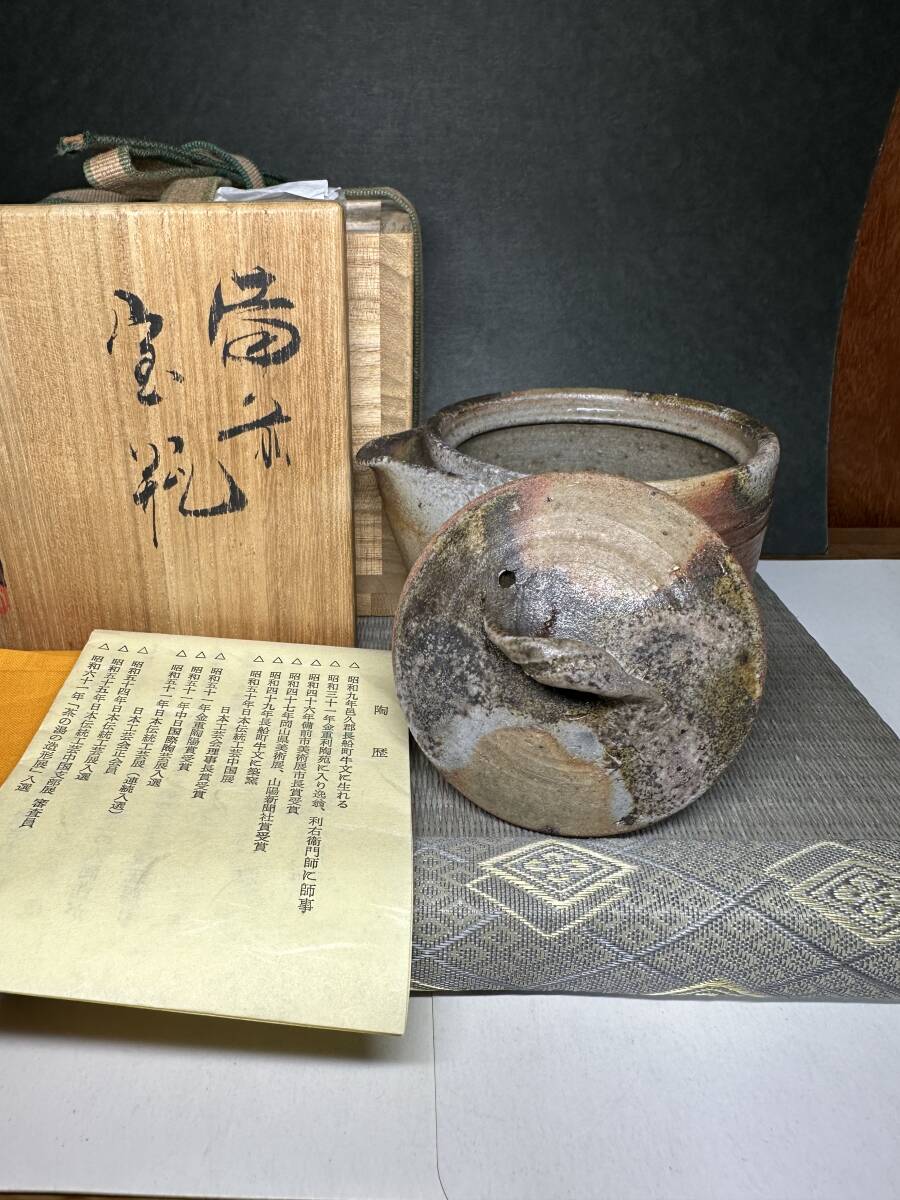 備前
宝瓶
陶歴
△ 昭和九年邑久郡長船町牛文に生れる
△ 昭和三一年金重利陶苑に入り逸翁、利右衛門師に師事
△ 昭和四十六年備前市美術展市長賞受賞
△ 昭和四十七年岡山県美術展、山陽新聞社賞受賞
△ 昭和四十九年長船町牛文に築窯
△ 昭和五十年日本伝統工芸展入選
△ 昭和五十一年日本工芸会中国展
日本工芸会理事長賞受賞
△ 昭和五十一年金重陶陽賞受賞
△ 昭和五十一年中日国際陶芸展入選
△ 昭和五十四年日本伝統工芸展(連続入選)
日本工芸会正会員
△ 昭和五十五年日本伝統工芸中国支部展 審査員
△ 昭和六十一年「茶の湯の造形展」入選